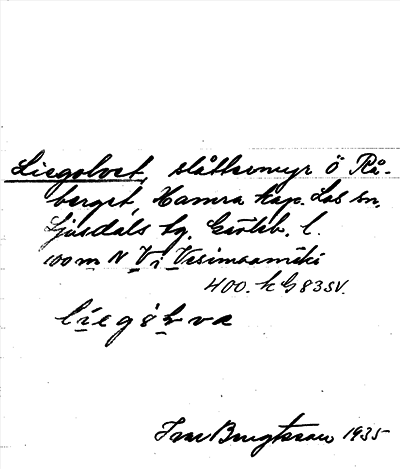 Liegolvet, slåttermyr Ö Rå-
berget, Hamra kap. Los sn.
Ljusdals tg. Gävleb. l.
100 m N V i Vesimaamäki
400. k G 83 SV.
liegôlva
Bengtsson 1935